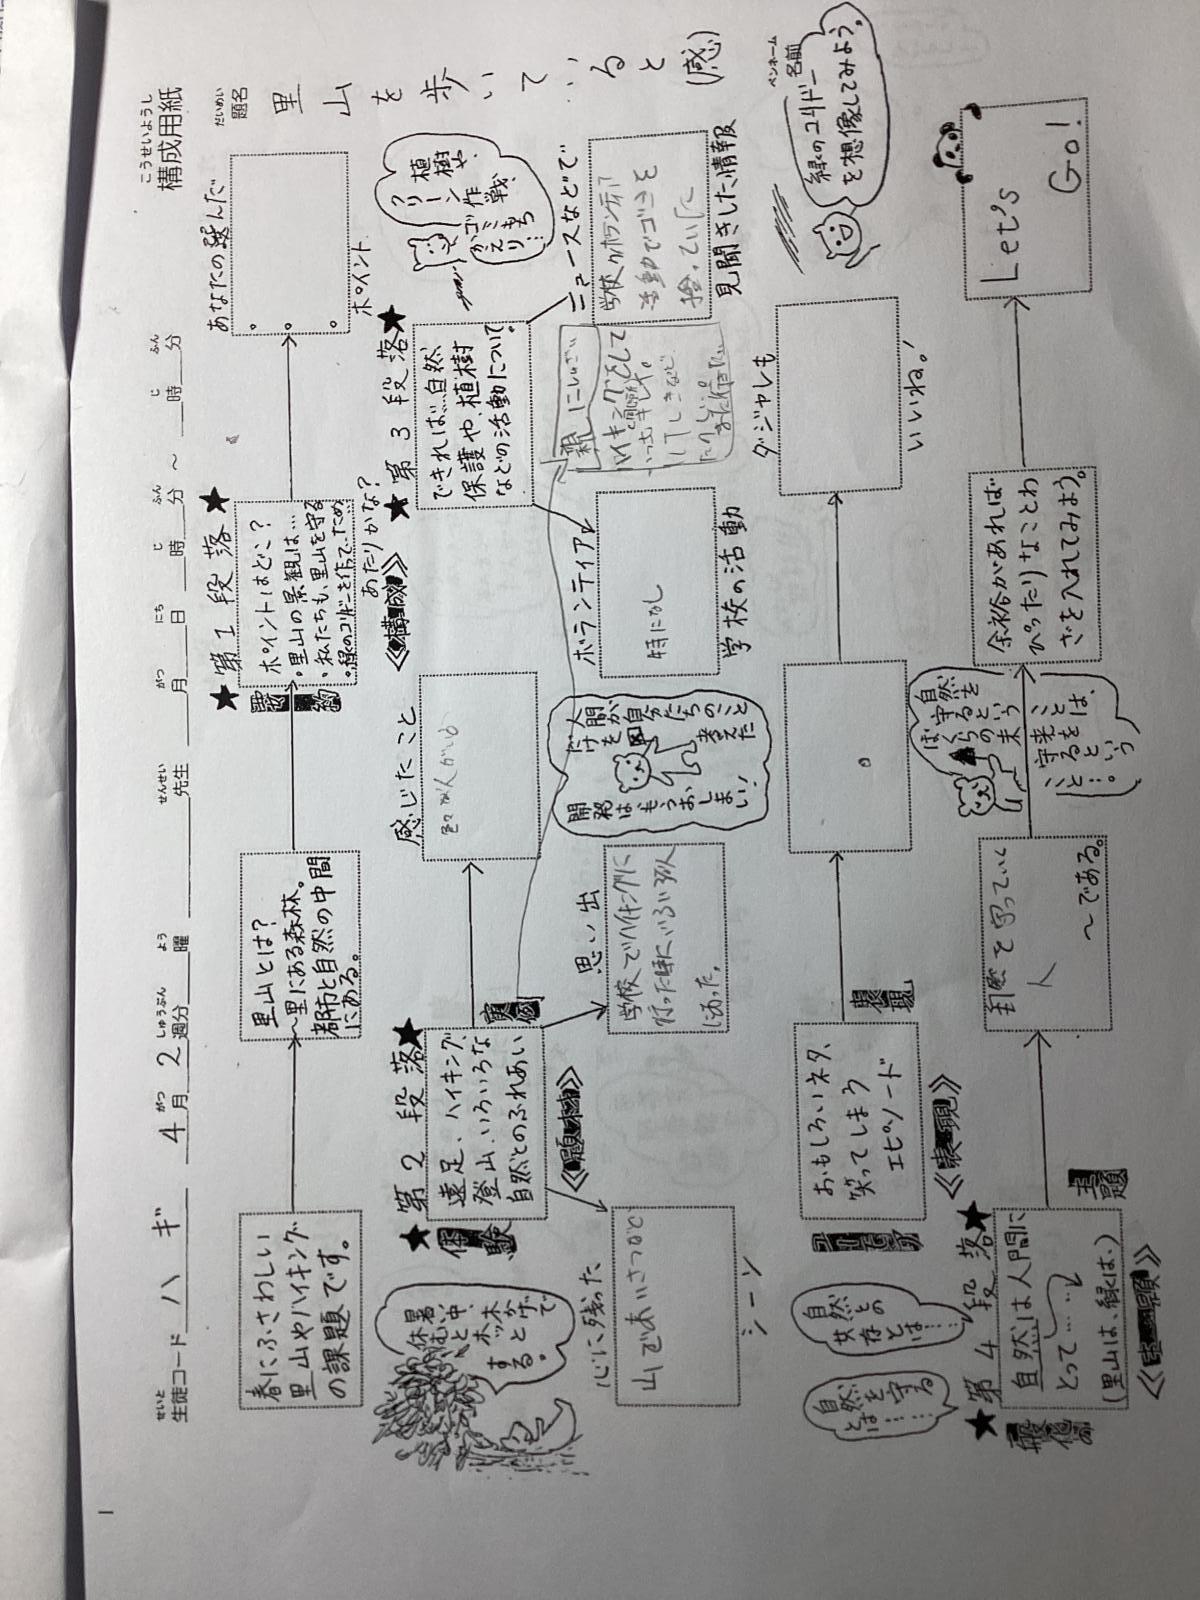 構成用紙
こうせいようし
題名
だいめい
里山を歩いていると(感)
ペンネーム
名前
生徒コード ハギ
せいと
4月2週分 曜 先生 月 日 時 分 〜 時 分
がつ しゅうぶん よう せんせい がつ にち じ ふん じ ふん
春にふさわしい
里山やハイキング
の課題です。
里山とは?
〜里にある森林。
都市と自然の中間
にある。
★第1段落★
要約
ポイントはどこ?
・里山の景観は…
・私たちも、里山を守る
・緑のコリドーを作るため
あたりかな?
あなたの選んだ
ポイント
★第2段落★
体験
実例
遠足、ハイキング、
登山、いろいろな
自然とのふれあい
《題材》
感じたこと
色々な人がいる
思い出
学校でハイキングに
行った時にいろいろな人
に会った。
心に残った
山であいさつなど
シーン
暑い中、
木かげで
休むと
ホッと
する。
《構成》
★第3段落★
できれば…自然
保護や、植樹
などの活動について。
ニュースなどで
学校のボランティア
活動でゴミを
捨っていた
見聞きした情報
ボランティア
特になし
学校の活動
植樹や、
クリーン作戦、
ゴミもち
かえり…
人間が
自分たちのこと
だけを考えた
開発は、もうおしまい!
ユーモア
おもしろいネタ、
笑ってしまう
エピソード
表現
《表現》
ダジャレも
いいね!
緑のコリドー
を想像してみよう。
自然との
共存とは……
自然を守る
とは……
★第4段落★
最後の
主題
自然は人間に
とって……
(里山は、緑は、)
《主題》
自然を守っていく
人
〜である。
自然を守るというこ
とは、
ぼくらの未来を
守ることという
こと…
余裕があれば
ぴったりなことわ
ざを入れてみよう。
Let's
Go!
1